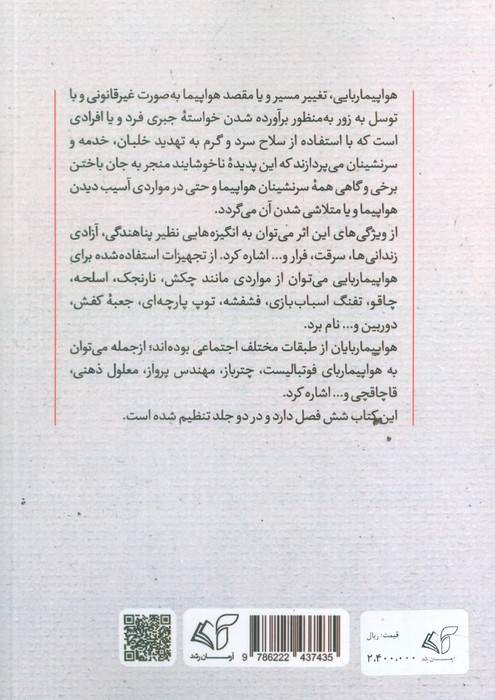 هواپیماربایی، تغییر مسیر و یا مقصد هواپیما به‌صورت غیرقانونی و با
توسل به زور به‌منظور برآورده شدن خواستهٔ جبری فرد و یا افرادی
است که با استفاده از سلاح سرد و گرم به تهدید خلبان، خدمه و
سرنشینان می‌پردازند که این پدیدهٔ ناخوشایند منجر به جان باختن
برخی و گاهی همهٔ سرنشینان هواپیما و حتی در مواردی آسیب دیدن
هواپیما و یا متلاشی شدن آن می‌گردد.
از ویژگی‌های این اثر می‌توان به انگیزه‌هایی نظیر پناهندگی، آزادی
زندانی‌ها، سرقت، فرار و... اشاره کرد. از تجهیزات استفاده‌شده برای
هواپیماربایی می‌توان از مواردی مانند چکش، نارنجک، اسلحه،
چاقو، تفنگ اسباب‌بازی، فشفشه، توپ پارچه‌ای، جعبهٔ کفش،
دوربین و... نام برد.
هواپیماربایان از طبقات مختلف اجتماعی بوده‌اند؛ ازجمله می‌توان
به هواپیماربای فوتبالیست، چترباز، مهندس پرواز، معلول ذهنی،
قاچاقچی و... اشاره کرد.
این کتاب شش فصل دارد و در دو جلد تنظیم شده است.
آرمان رشد
9 786222 437435
قیمت: ریال
۲.۴۰۰.۰۰۰
آرمان رشد